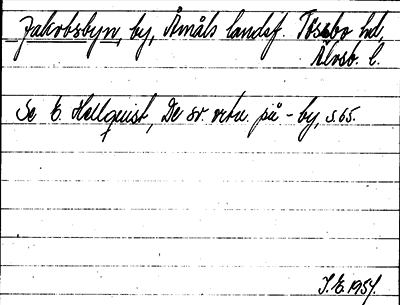 Jakobsbyn, by, Åmåls landsf. Tössbo hd,
Älvsb. l.
Se E. Hellquist, De sv. ortn. på -by, s 65.
I. E. 1954.